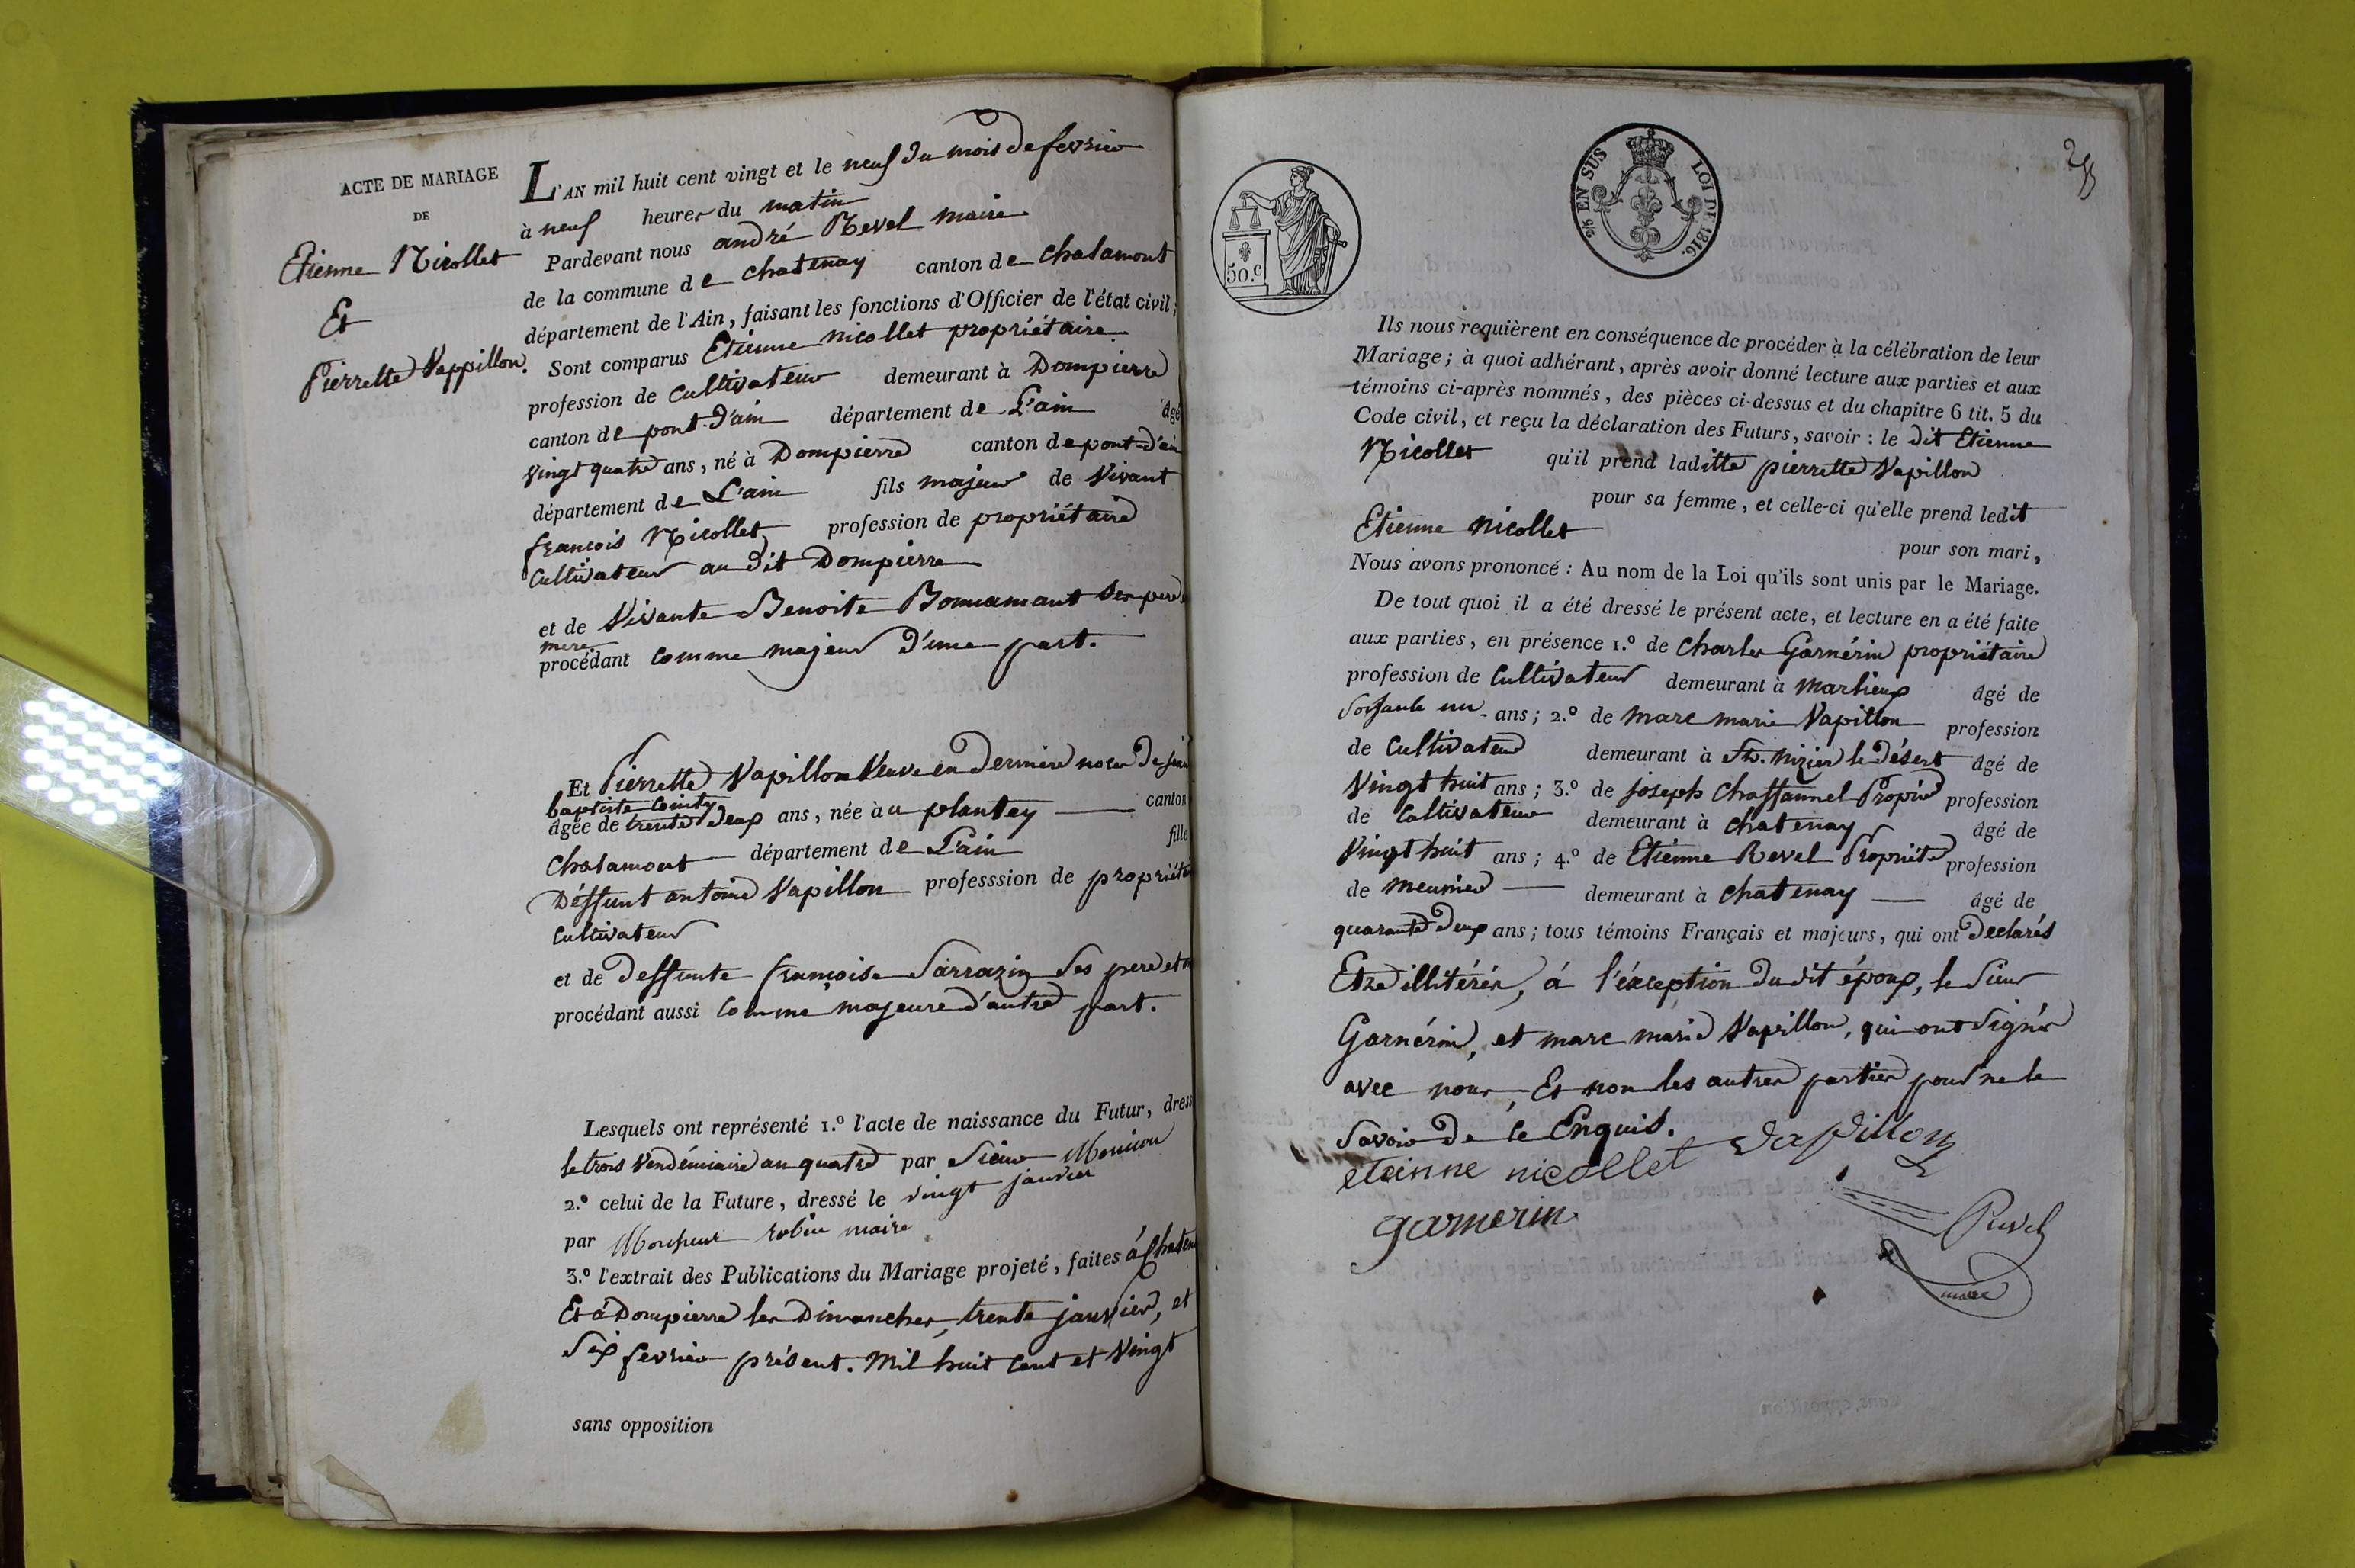 ACTE DE MARIAGE
DE
Etienne Nicollet
Et
Pierrette Vappillon.
L'AN mil huit cent vingt et le neuf du mois de fevrier
à neuf heures du matin
Pardevant nous andré Revel maire
de la commune de chatenay canton de chalamont
département de l'Ain, faisant les fonctions d'Officier de l'état civil;
Sont comparus Etienne nicollet propriétaire
profession de Cultivateur demeurant à Dompierre
canton de pont-d'ain département de L'ain âgé
vingt quatre ans, né à Dompierre canton de pont-d'ain
département de L'ain fils majeur de Vivant
françois Nicollet profession de propriétaire
Cultivateur au dit Dompierre
et de Vivante Benoite Bonnamant ses pere
mere
procédant comme majeur d'une part.
Et Pierrette Vapillon Veuve en derniere noces de
baptiste
âgée de trente deux ans, née à u plantey canton
Chalamont département de L'ain fille
Déffunt antoine Vapillon professsion de
cultivateur
et de deffunte françoise Sarrazin Ses pere et
procédant aussi comme majeure d'autre part.
Lesquels ont représenté 1.º l'acte de naissance du Futur,
le trois Vendémiaire an quatre par Sieur
2.º celui de la Future, dressé le vingt janvier
par Monsieur robin maire
3.º l'extrait des Publications du Mariage projeté, faites à
Et à Dompierre les Dimanches, trente janvier, et
Six fevrier présent. mil huit Cent et Vingt
sans opposition
28
50.c
2/5 EN SUS LOI DE 1816.
Ils nous requièrent en conséquence de procéder à la célébration de leur
Mariage; à quoi adhérant, après avoir donné lecture aux parties et aux
témoins ci-après nommés, des pièces ci-dessus et du chapitre 6 tit. 5 du
Code civil, et reçu la déclaration des Futurs, savoir : le dit Etienne
Nicollet qu'il prend laditte pierrette Vapillon
pour sa femme, et celle-ci qu'elle prend ledit
Etienne nicollet
pour son mari,
Nous avons prononcé : Au nom de la Loi qu'ils sont unis par le Mariage.
De tout quoi il a été dressé le présent acte, et lecture en a été faite
aux parties, en présence 1.º de Charles Garnérin propriétaire
profession de Cultivateur demeurant à marlieux âgé de
Soissante un ans; 2.º de marc marie Vapillon profession
de Cultivateur demeurant à St. nizier le désert âgé de
Vingt huit ans; 3.º de joseph Chassannel Proprié profession
de Cultivateur demeurant à chatenay âgé de
Vingt huit ans; 4.º de Etienne Revel Propriéte profession
de meunier demeurant à chatenay âgé de
quarante deux ans; tous témoins Français et majeurs, qui ont declarés
Etre illitérés, á l'éxception du dit époux, le Sieur
Garnérin, et marc marie Vapillon, qui ont Signés
avec nous, Et non les autres parties pour ne le
Savoir de ce Enquis.
eteinne nicollet Vapillon
garnerin
Revel
maire